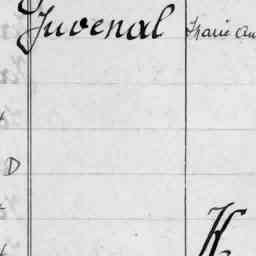 Juvenal Marie
D
K